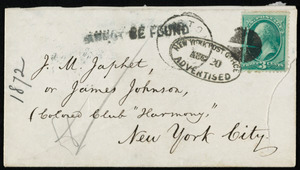 CANNOT BE FOUND
NEW YORK POST OFFICE
AUG 20
ADVERTISED
1872
J. M. Japhet,
or James Johnson,
(Colored Club "Harmony,"
New York City.